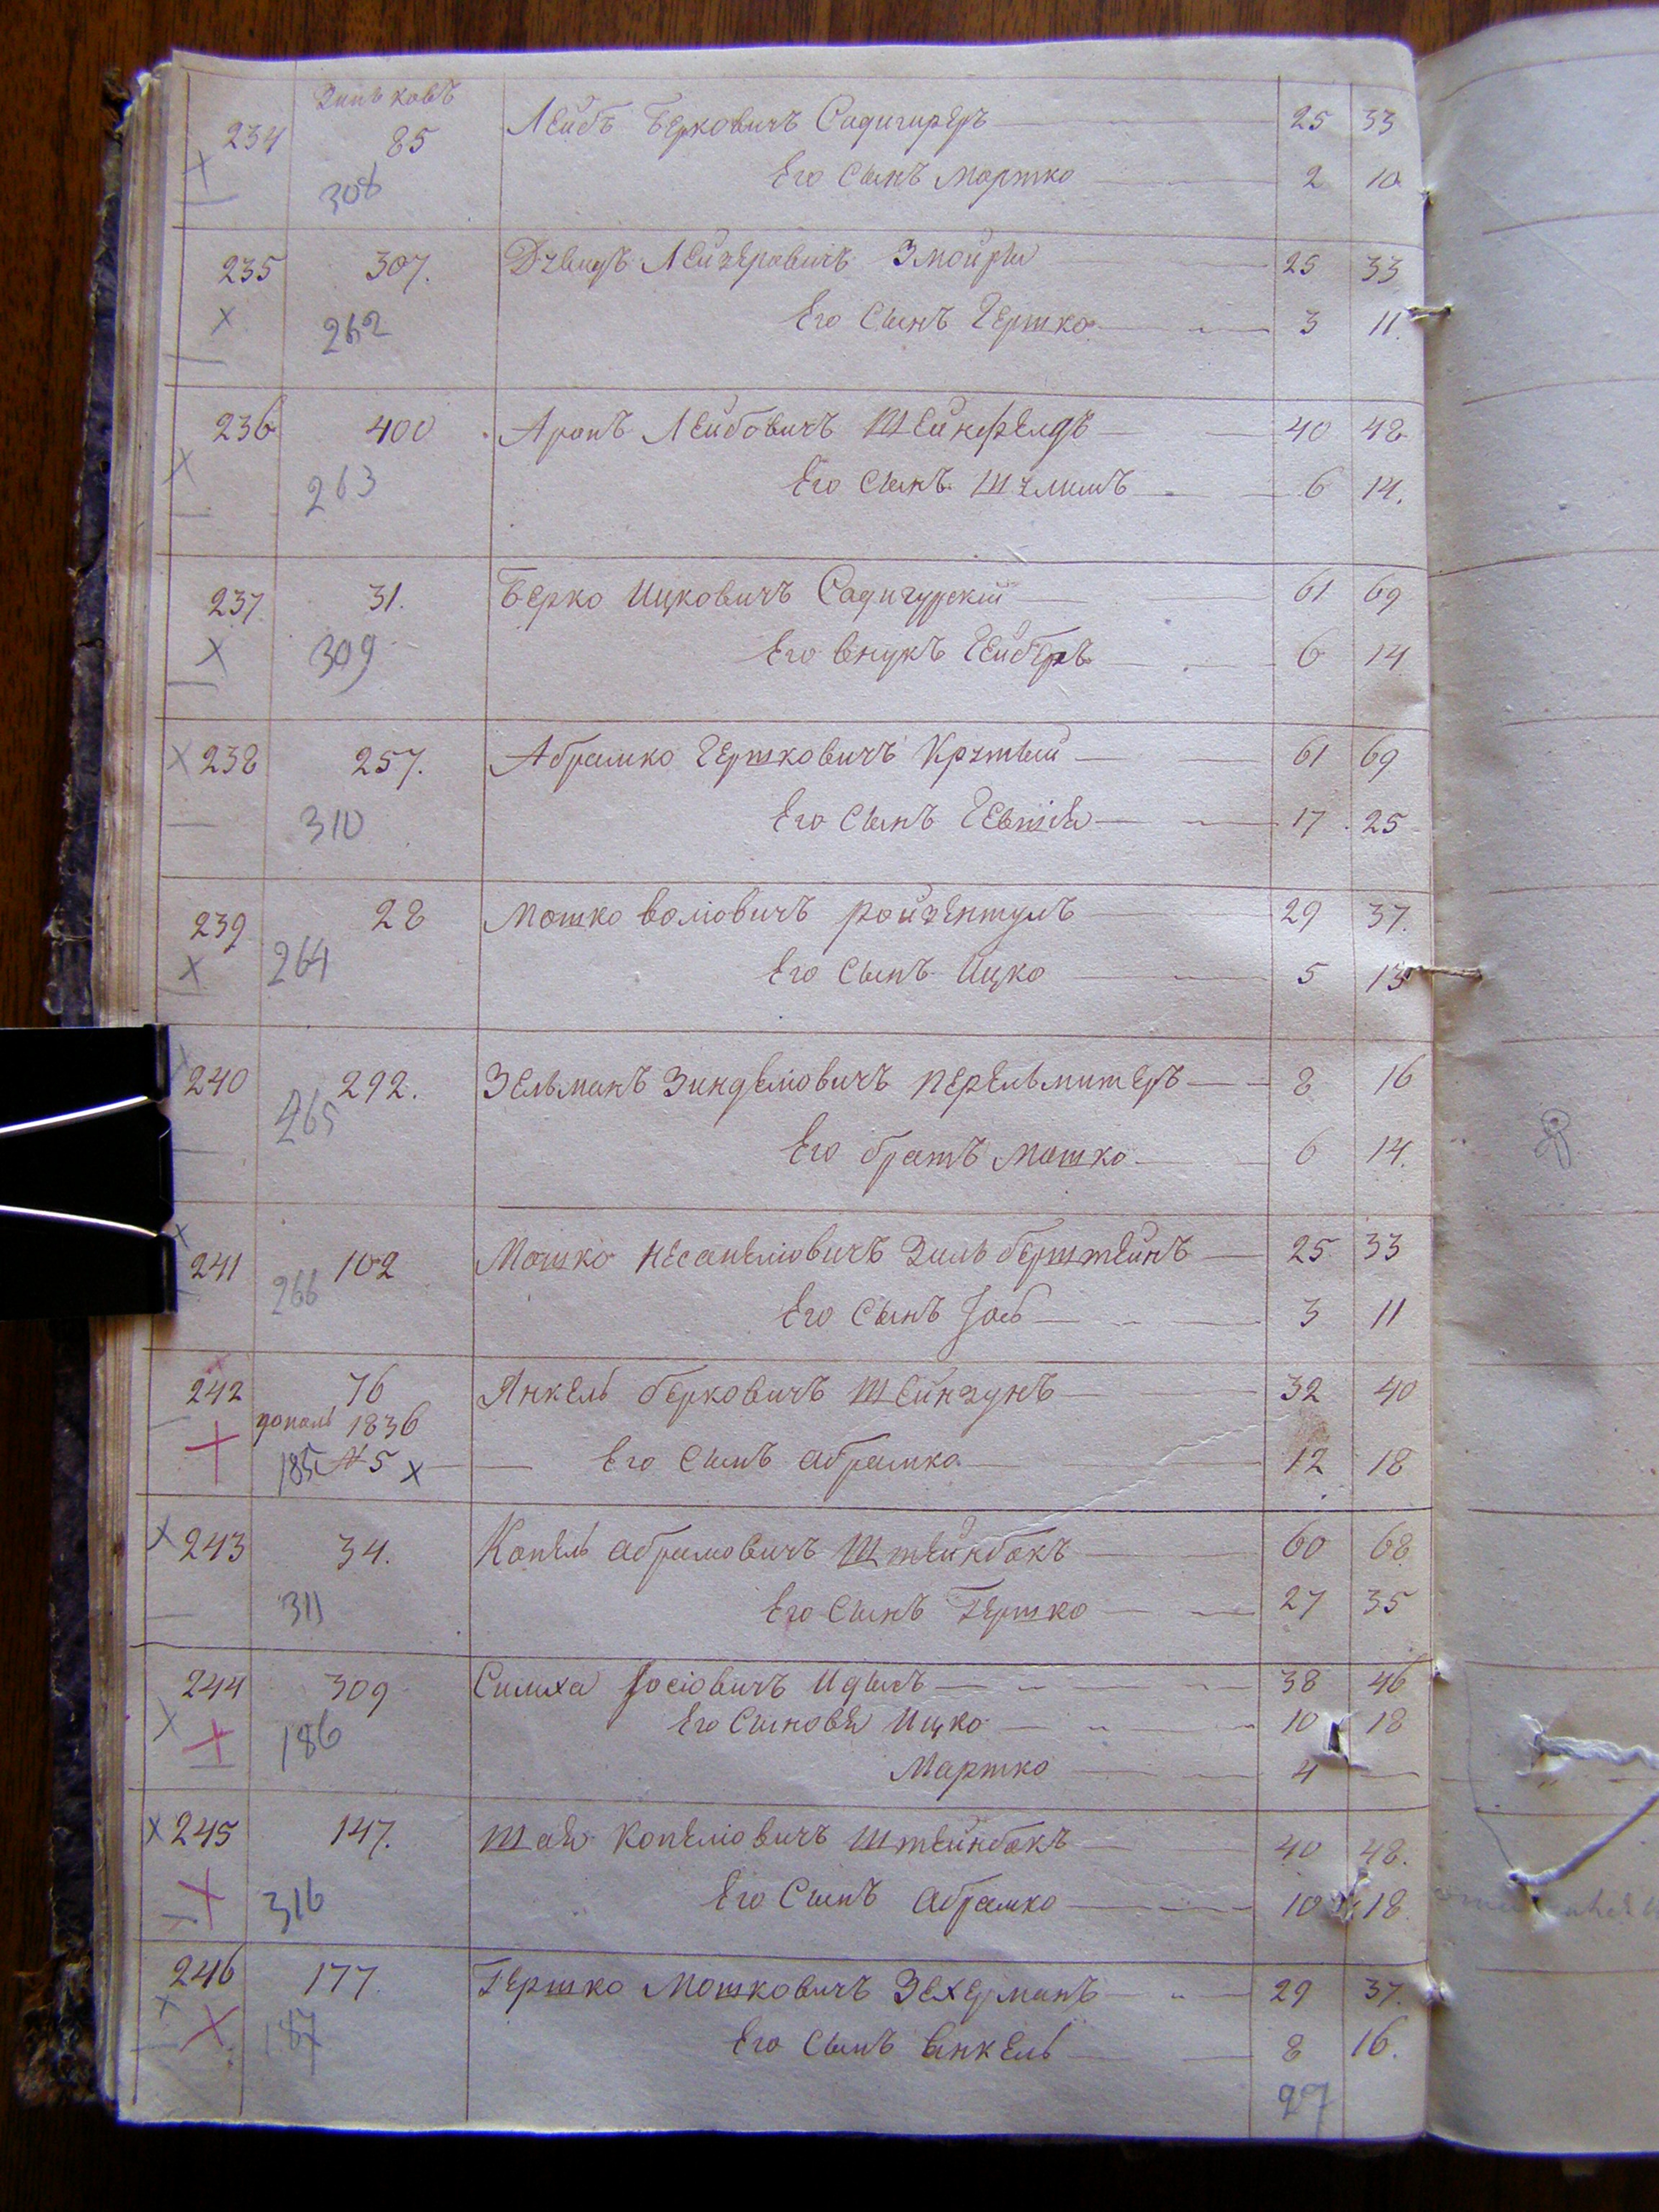 Зиньковъ
234 85 Лейбъ Берковичъ Садигиреръ 25 33
308 Его Сынъ Мортко 2 10
235 307. Давидъ Лейзеровичъ Змойра 25 33
262 Его Сынъ Гершко 3 11.
236 400 Аронъ Лейбовичъ Шейнфелдъ 40 48
263 Его Сынъ Шлиомъ 6 14.
237 31. Берко Ицковичъ Садигурскій 61 69
309 Его внукъ Лейберъ 6 14
238 257. Абрамко Гершковичъ 61 69
310 Его Сынъ 17 25
239 28 Мошко Воліовичъ Ройзентулъ 29 37.
264 Его Сынъ Ицко 5 13
240 292. Зельманъ Зинделіовичъ Перельмитеръ 8 16
265 Его братъ Мошко 6 14.
241 102 Мошко Несанеліовичъ Зильберштейнъ 25 33
266 Его Сынъ Іось 3 11
242 76 Янкель Берковичъ Шейнзунъ 32 40
дополн 1836
185 № 5 Его Сынъ Абрамко 12 18
243 34. Копель Абрамовичъ Штейнбокъ 60 68.
311 Его Сынъ Гершко 27 35
244 309 Симха Іосіовичъ Идысъ 38 46
186 Его Сыновя Ицко 10 18
Мартко 4 —
245 147. Шая Копеліовичъ Штейнбокъ 40 48.
316 Его Сынъ Абрамко 10 18.
246 177. Гершко Мошковичъ Зехерманъ 29 37.
187 Его Сынъ Янкель 8 16.
27